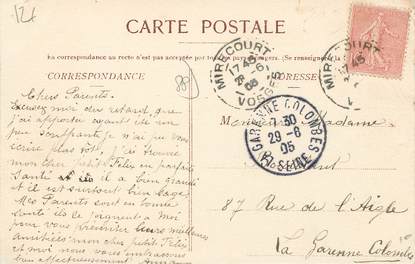 12f
CARTE POSTALE
La correspondance au recto n'est pas acceptée par tous les pays étrangers. (Se renseigner
CORRESPONDANCE
ADRESSE
MIRECOURT
17 45
VOSGES
MIRECOURT
LA GARENNE COLOMBES
7 30
29-6
05
LA SEINE
Chers Parents.
Excusez moi du retard que
j'ai apporté ayant été un
peu souffrante je n'ai pu vous
écrire plus tôt, j'ai trouvé
mon cher petit Félix en parfaite
Santé et il a bien grandi
et il est surtout bien sage
Mes Parents sont en bonne
santé ils se joignent à moi
pour vous présenter leurs meilleures
amitiées mon cher petit Félix
et moi nous vous embrassons
bien affectueusement
Madame
87 Rue de l'Aigle
La Garenne Colombes